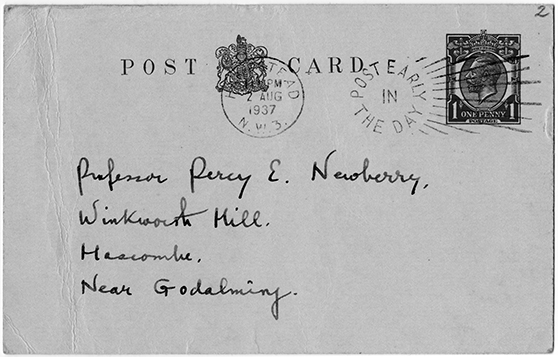 2
POST CARD
HAMPSTEAD
PM
2 AUG
1937
N.W.3.
POST EARLY
IN
THE DAY
1 ONE PENNY 1
POSTAGE
Professor Percy E. Newberry,
Winkworth Hill.
Hascombe.
Near Godalming.